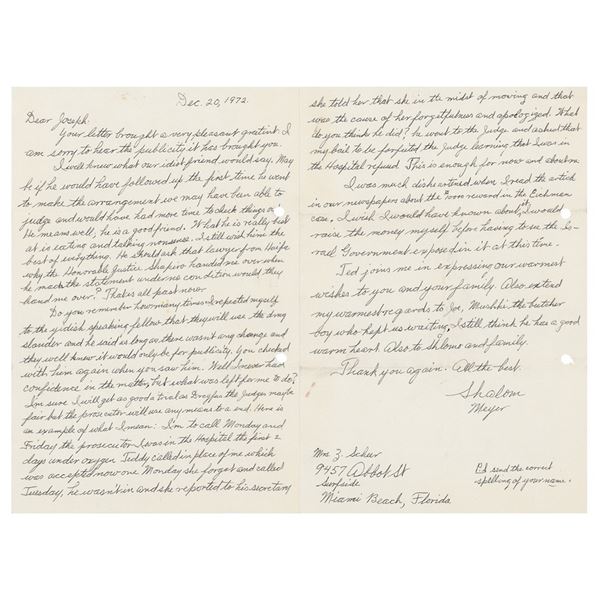 Dec. 20, 1972.
Dear Joseph:
Your letter brought a very pleasant greeting. I
am sorry to hear the publicity it has brought you.
I well knew what our idiot friend would say. May
be if he would have followed up the first time he went
to make the arrangement we may have been able to
judge and would have had more time to check things out.
He means well, he is a good friend. What he is really best
at is eating and talking nonsense. I still wish him the
best of everything. He should ask that lawyer from Haifa
why the Honorable Justice Shapiro handed me over when
he made the statement under no condition would they
hand me over. That is all past now.
Do you remember how many times I repeated myself
to the yidish speaking fellow that they will use the drug
slander and he said as long as there wasn't any change and
they well knew it would only be for publicity. You checked
with him again when you saw him. Well I never had
confidence in the matter, but what was left for me to do?
I'm sure I will get as good a trial as Dreyfus the Judge may be
fair but the prosecutor will use any means to a end. Here is
an example of what I mean: I'm to call Monday and
Friday the prosecutor I was in the Hospital the first 2
days under oxygen Teddy called in place of me which
was accepted now one Monday she forgot and called
Tuesday, he wasn't in and she reported to his secretary
she told her that she in the midst of moving and that
was the cause of her forgetfulness and apologized. What
do you think he did? he went to the Judge and asked that
my bail to be forfeited the Judge learning that I was in
the Hospital refused. This is enough for now and about me.
I was much disheartened when I read the article
in our newspapers about the reward in the Eichman
case. I wish I would have known about it, I would
raise the money myself before having to see the Is-
rael Government exposed in it at this time.
Ted joins me in expressing our warmest
wishes to you and your family. Also extend
my warmest regards to Joe, Mushki the butcher
boy who kept us waiting, I still think he has a good
warm heart. Also to Shlomo and family.
Thank you again. All the best.
Shalom
Meyer
Mrs Z. Scheur
9457 Abbot St
Surfside
Miami Beach, Florida
P.S. send the correct
spelling of your name.